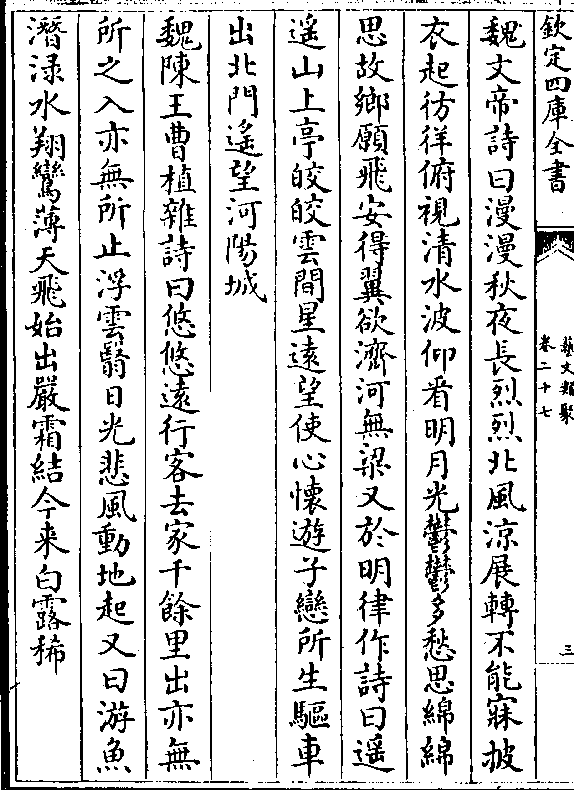 欽定四庫全書
藝文類聚
卷二十七
三
魏文帝詩曰漫漫秋夜長烈烈北風涼展轉不能寐披
衣起彷徉俯視清水波仰看明月光鬱鬱多愁思綿綿
思故鄉願飛安得翼欲濟河無梁又於明律作詩曰遥
遥山上亭皎皎雲間星遠望使心懷遊子戀所生驅車
出北門遙望河陽城
魏陳王曹植雜詩曰悠悠遠行客去家千餘里出亦無
所之入亦無所止浮雲翳日光悲風動地起又曰游魚
潛渌水翔鸞薄天飛始出嚴霜結今来白露稀